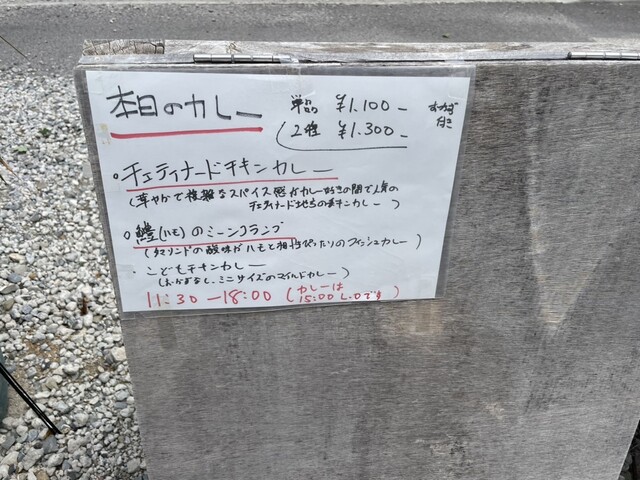 本日のカレー
単品 ¥1.100-
2種 ¥1.300-
おかず
付き
・チェティナードチキンカレー
(華やかで複雑なスパイス感がカレー好きの間で人気の
チェティナード地方のチキンカレー)
・鱧(ハモ)のミーンクランブ
(タマリンドの酸味がハモと相性ぴったりのフィッシュカレー)
・こどもチキンカレー
(おかずなし、ミニサイズのマイルドカレー)
11:30-18:00 (カレーは
15:00 L.Oです)